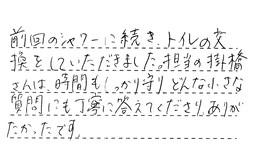 前回のシャワーに続き、トイレの交
換をしていただきました。担当の掛橋
さんは、時間もしっかり守り、どんな小さな
質問にも丁寧に答えてくださり、ありが
たかったです。